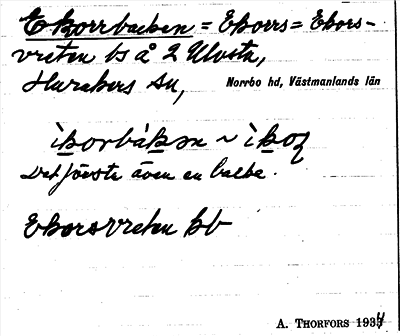 Ekorrbacken = Ekorrs = Ekors-
vreten bs å 2 Ulvsta,
Harakers sn,
Norrbo hd, Västmanlands län
ìkorbàkən ~ ìkoʐ
Det första även en backe.
Ekorsvreten bb
A. THORFORS 1934